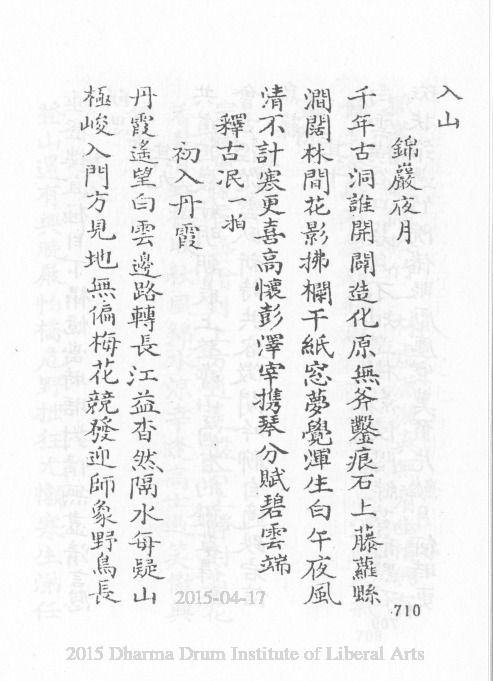 入山
錦巖夜月
千年古洞誰開闢造化原無斧鑿痕石上藤蘿懸
澗闊林間花影拂欄干紙窓夢覺渾生白午夜風
清不計寒更喜高懷彭澤宰携琴分賦碧雲端
釋古泯一拍
初入丹霞
丹霞遙望白雲邊路轉長江益杳然隔水每疑山
極峻入門方見地無偏梅花競發迎師象野鳥長
710
2015-04-17
2015 Dharma Drum Institute of Liberal Arts